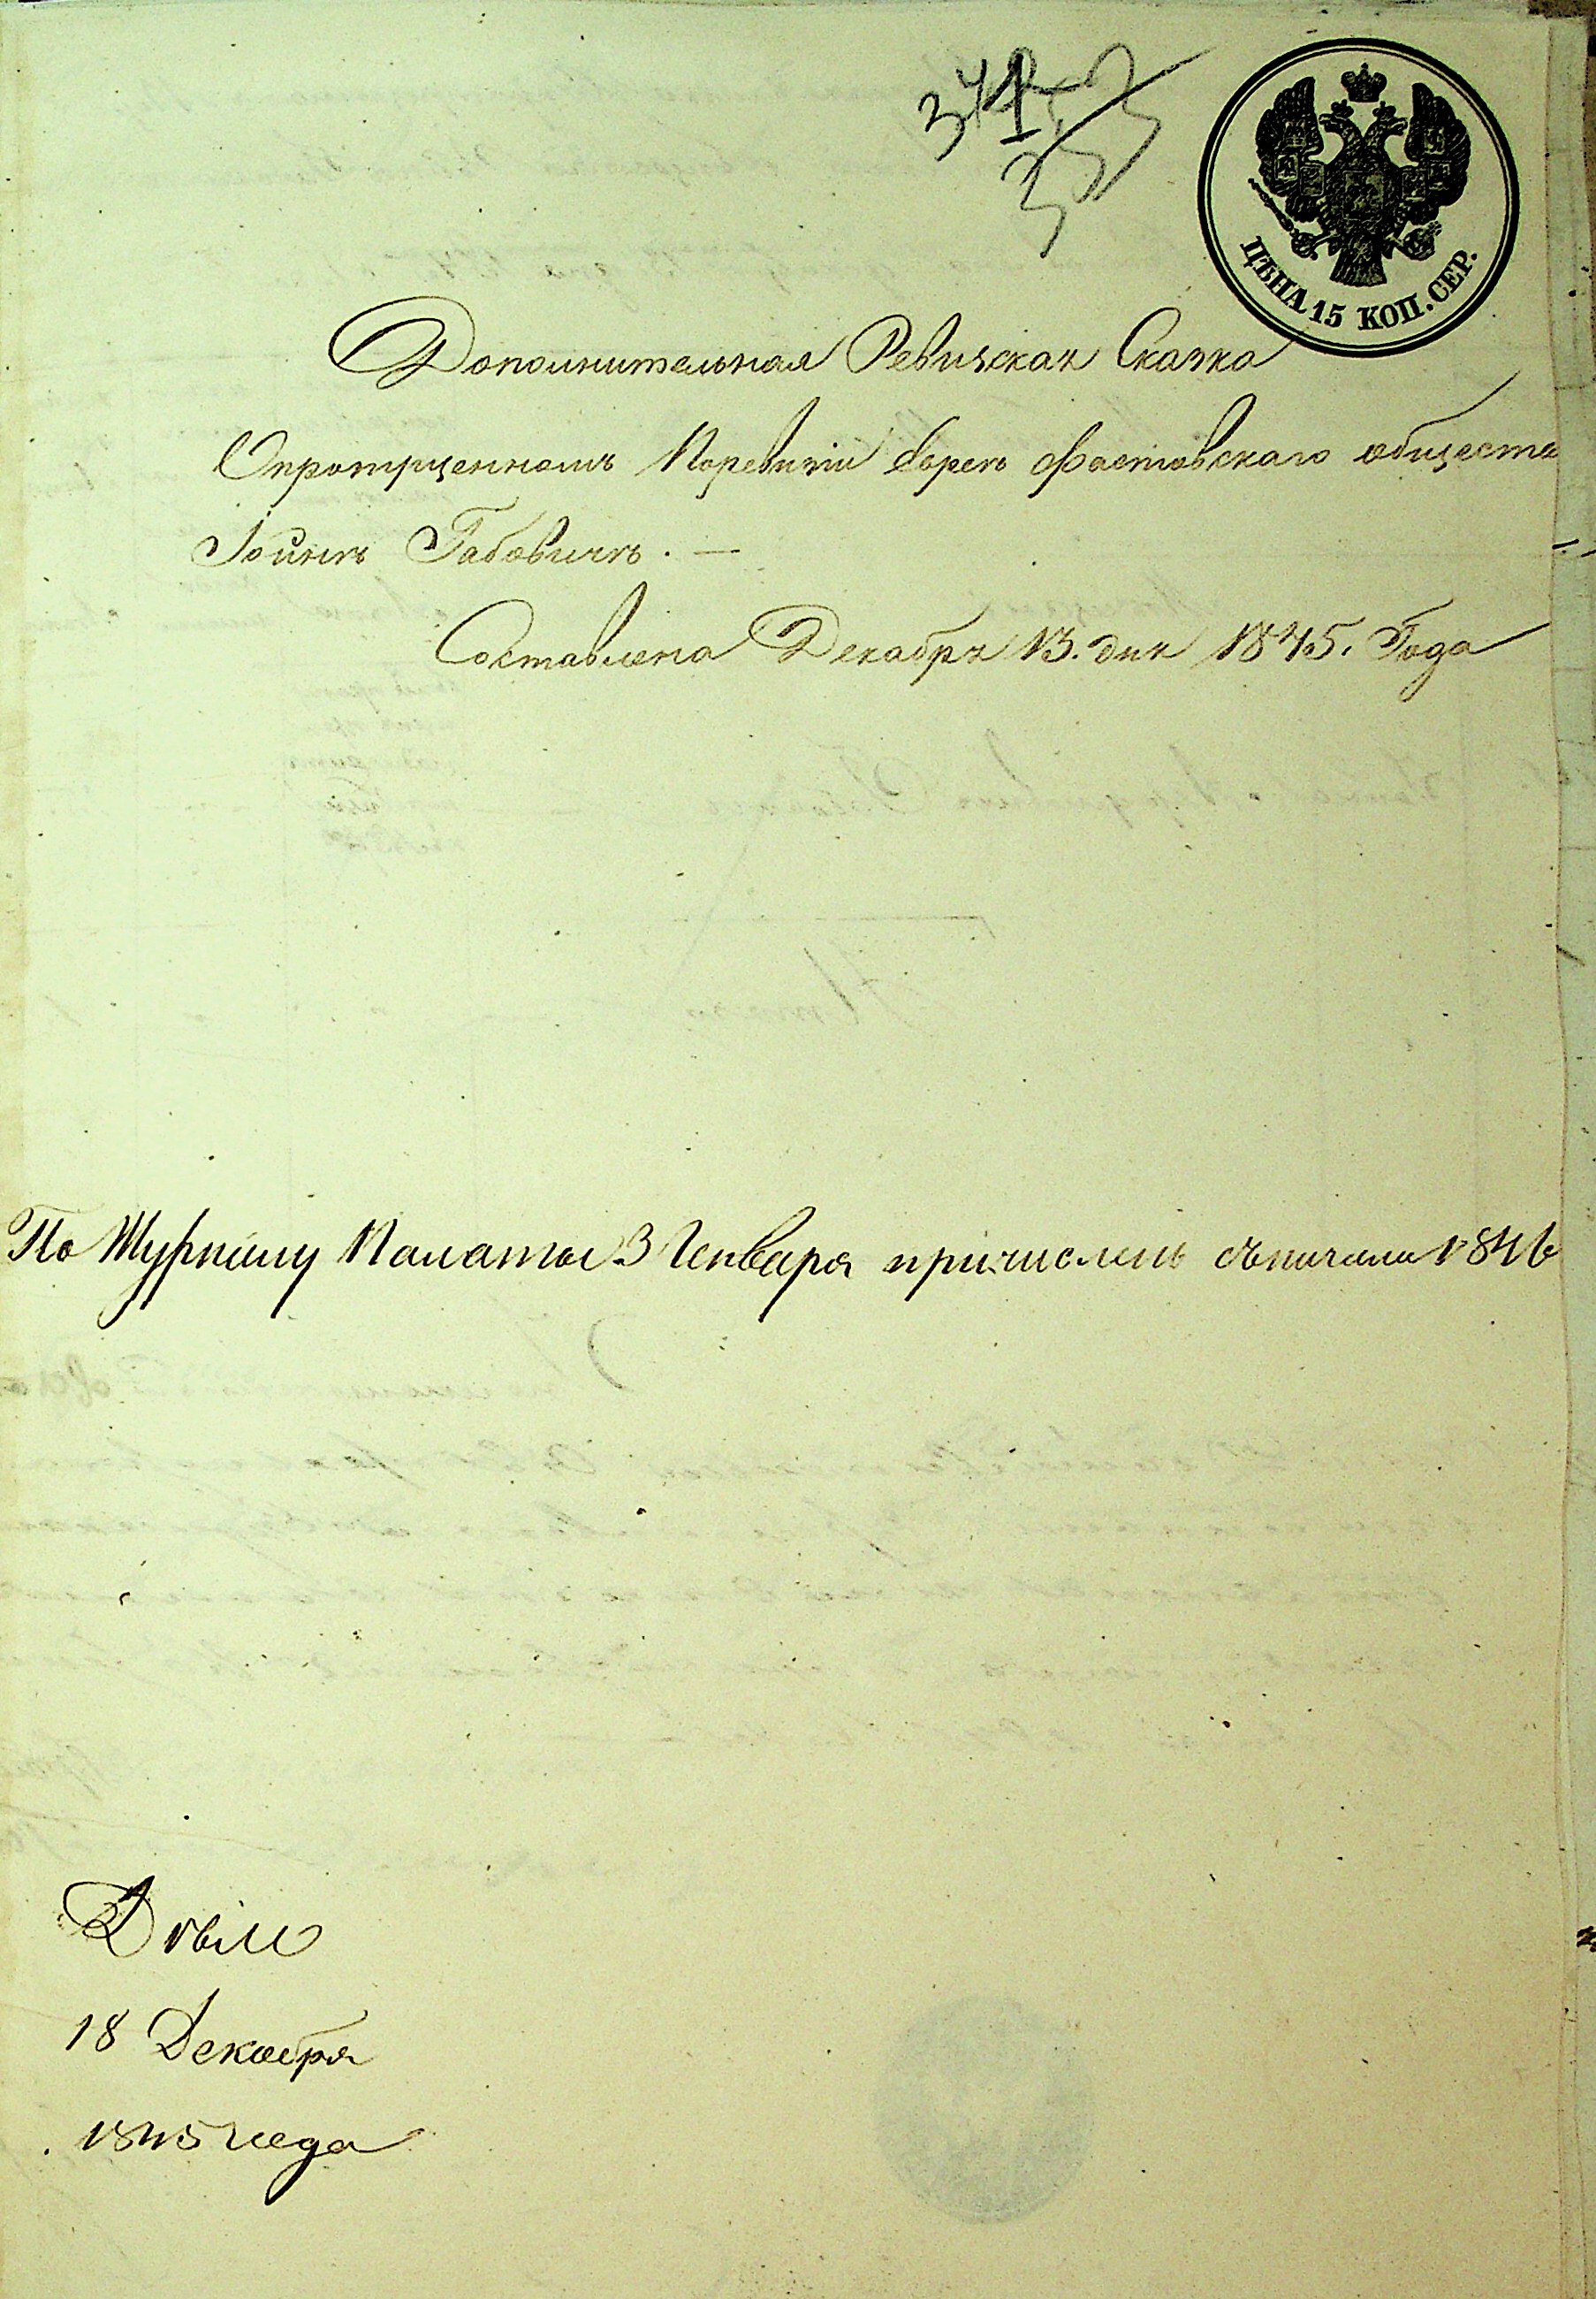 ЦѢНА 15 КОП. СЕР.
Дополнительная Ревизская Сказка
Опропущенномъ Поревизіи Евреѣ Фастовскаго общества
Іойнѣ Габовичѣ. —
Составлена Декабря 13. дня 1845. Года
По Журналу Палаты 3 Генваря причисленъ съ начала 1846
18 Декабря
1845 года